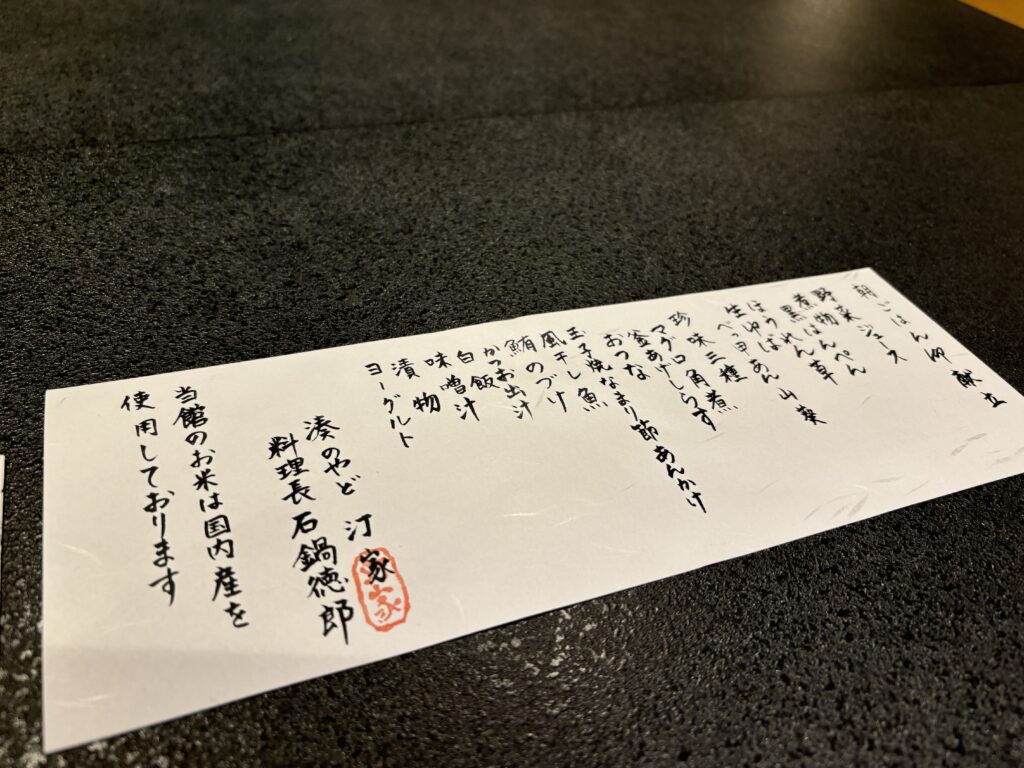 朝ごはん御献立
野菜ジュース
煮物 黒はんぺん
ほうれん草
生ゆば べっ甲あん 山葵
珍味三種
マグロ角煮
釜あげしらす
おつな
玉子焼 なまり節あんかけ
風干し魚
鮪のづけ
かつお出汁
白飯
味噌汁
漬物
ヨーグルト
湊のやど 汀家
料理長 石鍋徳郎
当館のお米は国内産を
使用しております